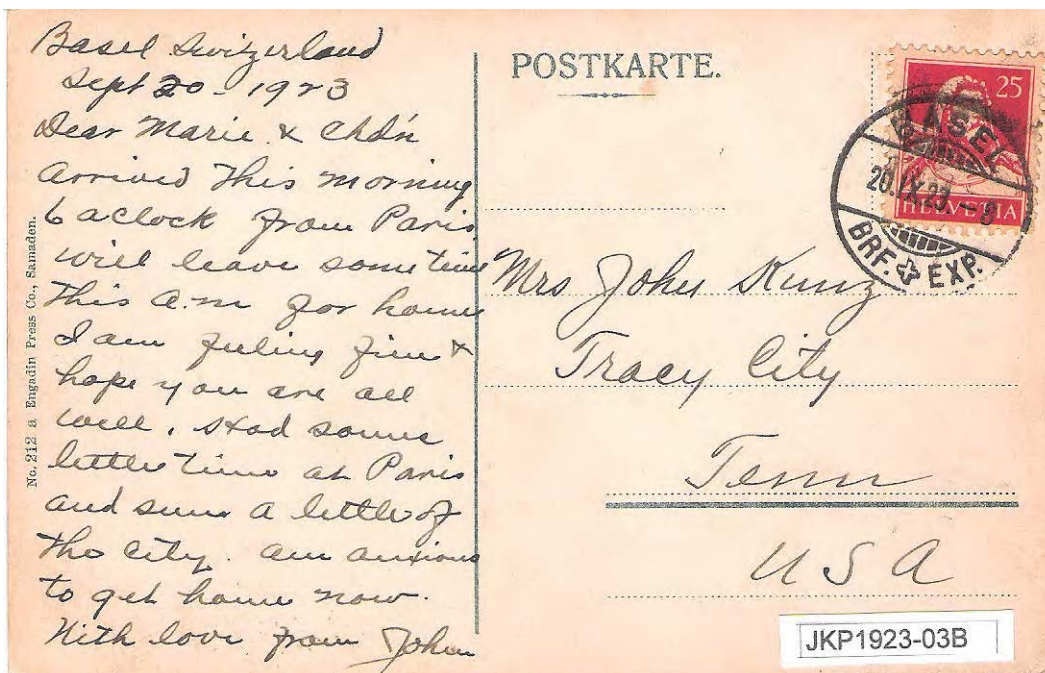 Basel Switzerland
Sept 20 - 1923
Dear Marie & Chd'n
arrived this morning
6 aclock from Paris
will leave some time
this a.m for home
I am feeling fine &
hope you are all
well. Had some
little time at Paris
and seen a little of
the city. am anxious
to get home now.
With love from John
No. 212 a Engadin Press Co., Samaden.
POSTKARTE.
25
HELVETIA
BASEL
20.IX.23.-8
BRF. EXP.
Mrs John Kunz
Tracy City
Tenn
USA
JKP1923-03B